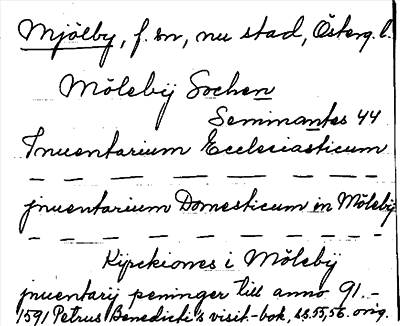 Mjölby, f. sn, nu stad, Österg. l.
Mölebÿ Sochen
Seminantes 44
Inuentarium Ecclesiasticum
— — — — — — — — —
jnuentarium Domesticum in Mölebÿ
— — — — — — — — —
Kijrckiones i Mölebÿ
jnuentarij peninger till anno 91.-
1591 Petrus Benedicti's visit.-bok, ss. 55, 56. orig.